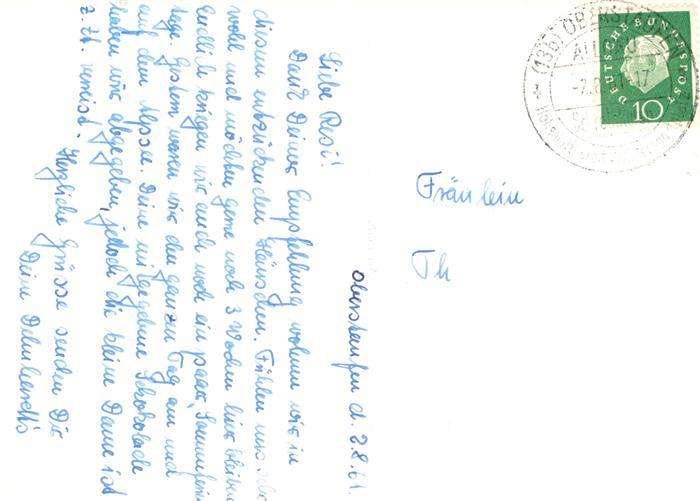 Oberstaufen d. 2.8.61
Liebe Resi!
Dank Deiner Empfehlung wohnen wir in
diesem entzückenden Häuschen. Fühlen uns
wohl und möchten gerne noch 3 Wochen hier bleiben
endlich kriegen wir auch noch ein paar Sommerferien
tage. Gestern waren wir den ganzen Tag am und
auf den Alpsee. Deine mitgegebene Schokolade
haben wir abgegeben, jedoch die kleine Dame ist
z. Zt. verreist. Herzliche Grüsse senden Dir
Deine
Fräulein
Th
DEUTSCHE BUNDESPOST
10
(13b) OBERSTAUFEN